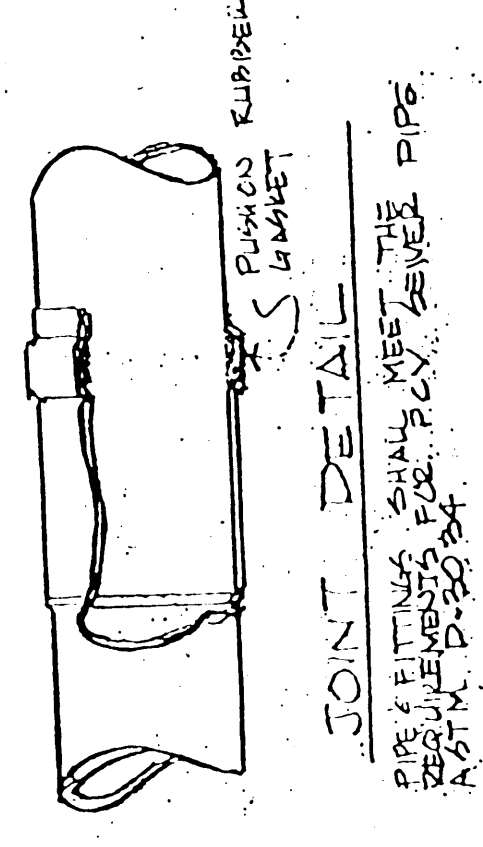 PUSH ON RUBBER
GASKET
JOINT DETAIL
PIPE & FITTINGS SHALL MEET THE
REQUIREMENTS FOR PCV SEWER PIPE
ASTM D-3034